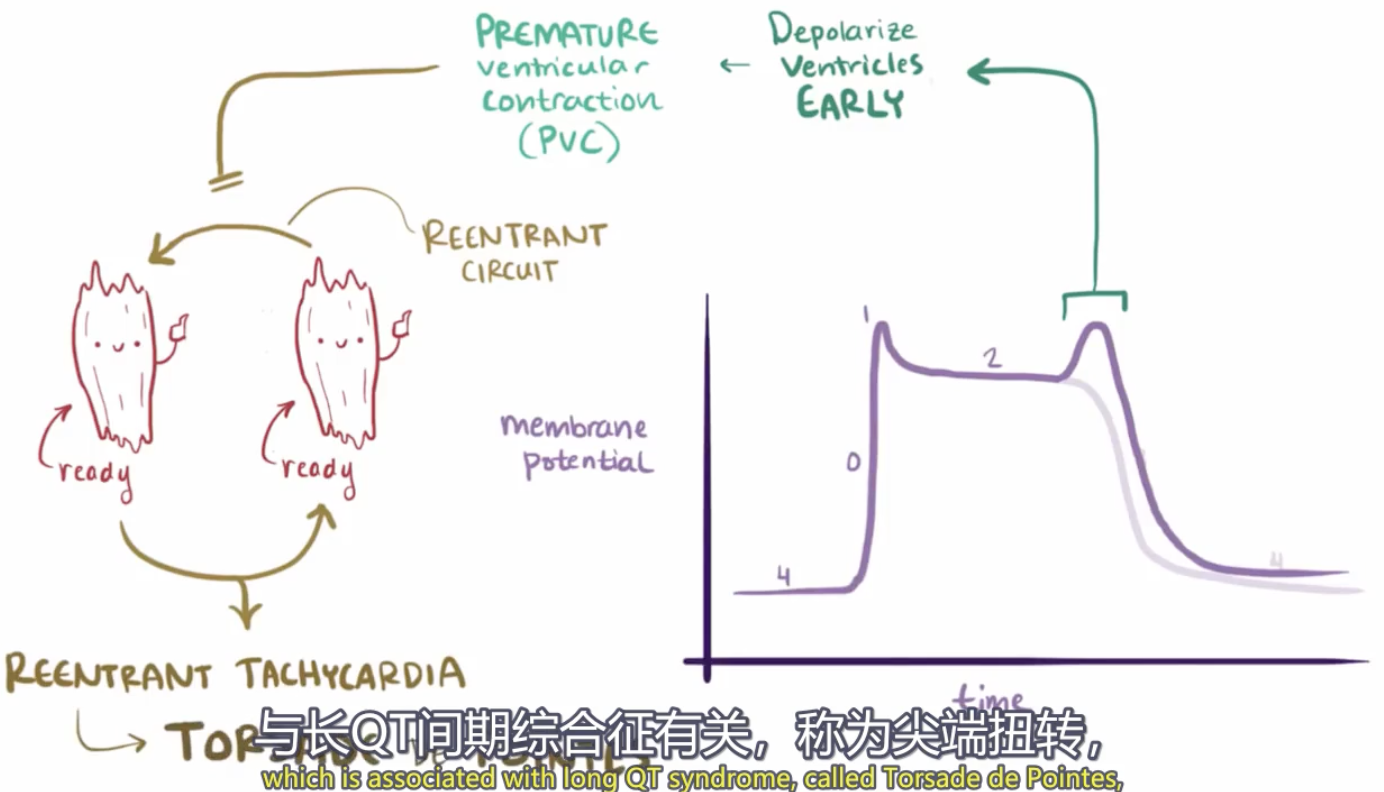 PREMATURE
ventricular
contraction
(PVC)
←
Depolarize
ventricles
EARLY
REENTRANT
CIRCUIT
ready
ready
membrane
potential
4
0
1
2
4
time
REENTRANT TACHYCARDIA
与长QT间期综合征有关，称为尖端扭转，
which is associated with long QT syndrome, called Torsade de Pointes,